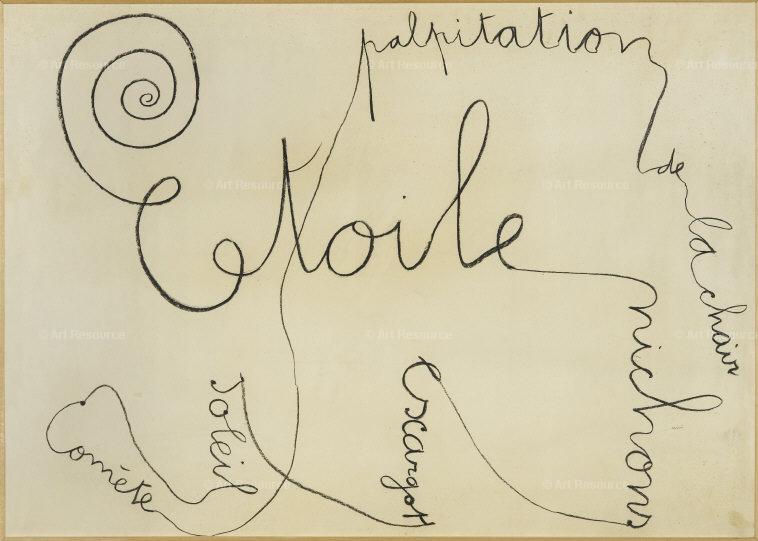 palpitation
de
la
chair
Etoile
nichons
escargot
soleil
Comète
© Art Resource
© Art Resource
© Art Resource
© Art Resource
© Art Resource
© Art Resource
© Art Resource
© Art Resource
© Art Resource
© Art Resource
© Art Resource